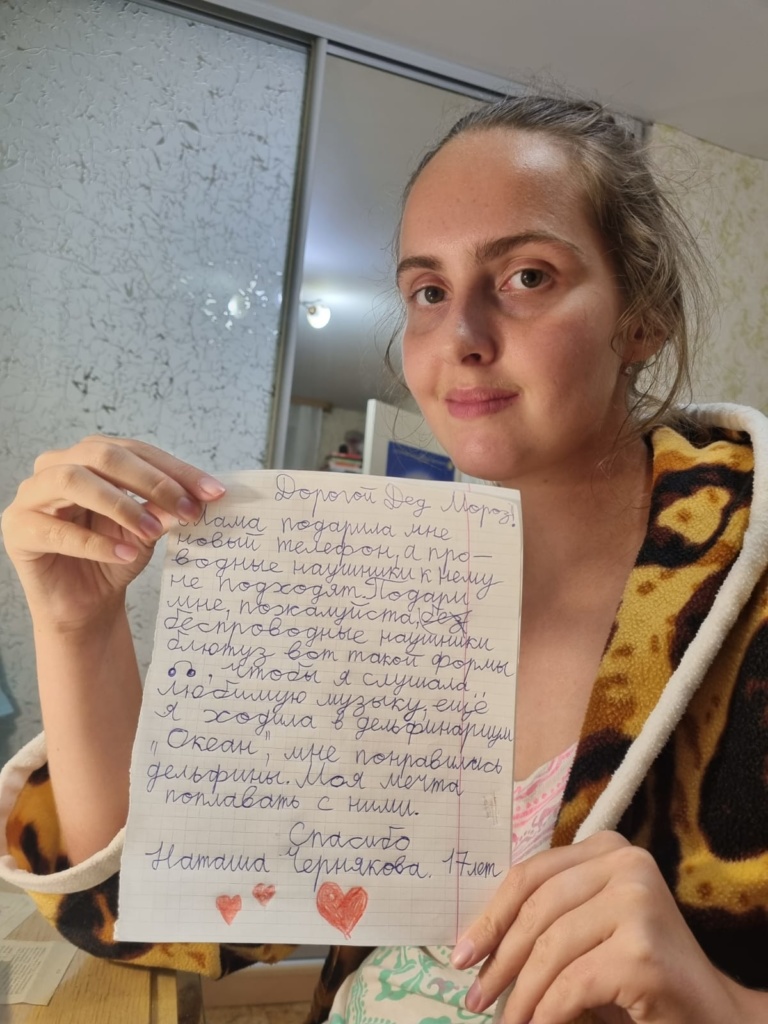 Дорогой Дед Мороз!
Мама подарила мне
новый телефон, а про-
водные наушники к нему
не подходят. Подари
мне, пожалуйста, без
беспроводные наушники
блютуз вот такой формы
, чтобы я слушала
любимую музыку, ещё
я ходила в дельфинариум
„Океан", мне понравились
дельфины. Моя мечта
поплавать с ними.
Спасибо
Наташа Чернякова. 17 лет